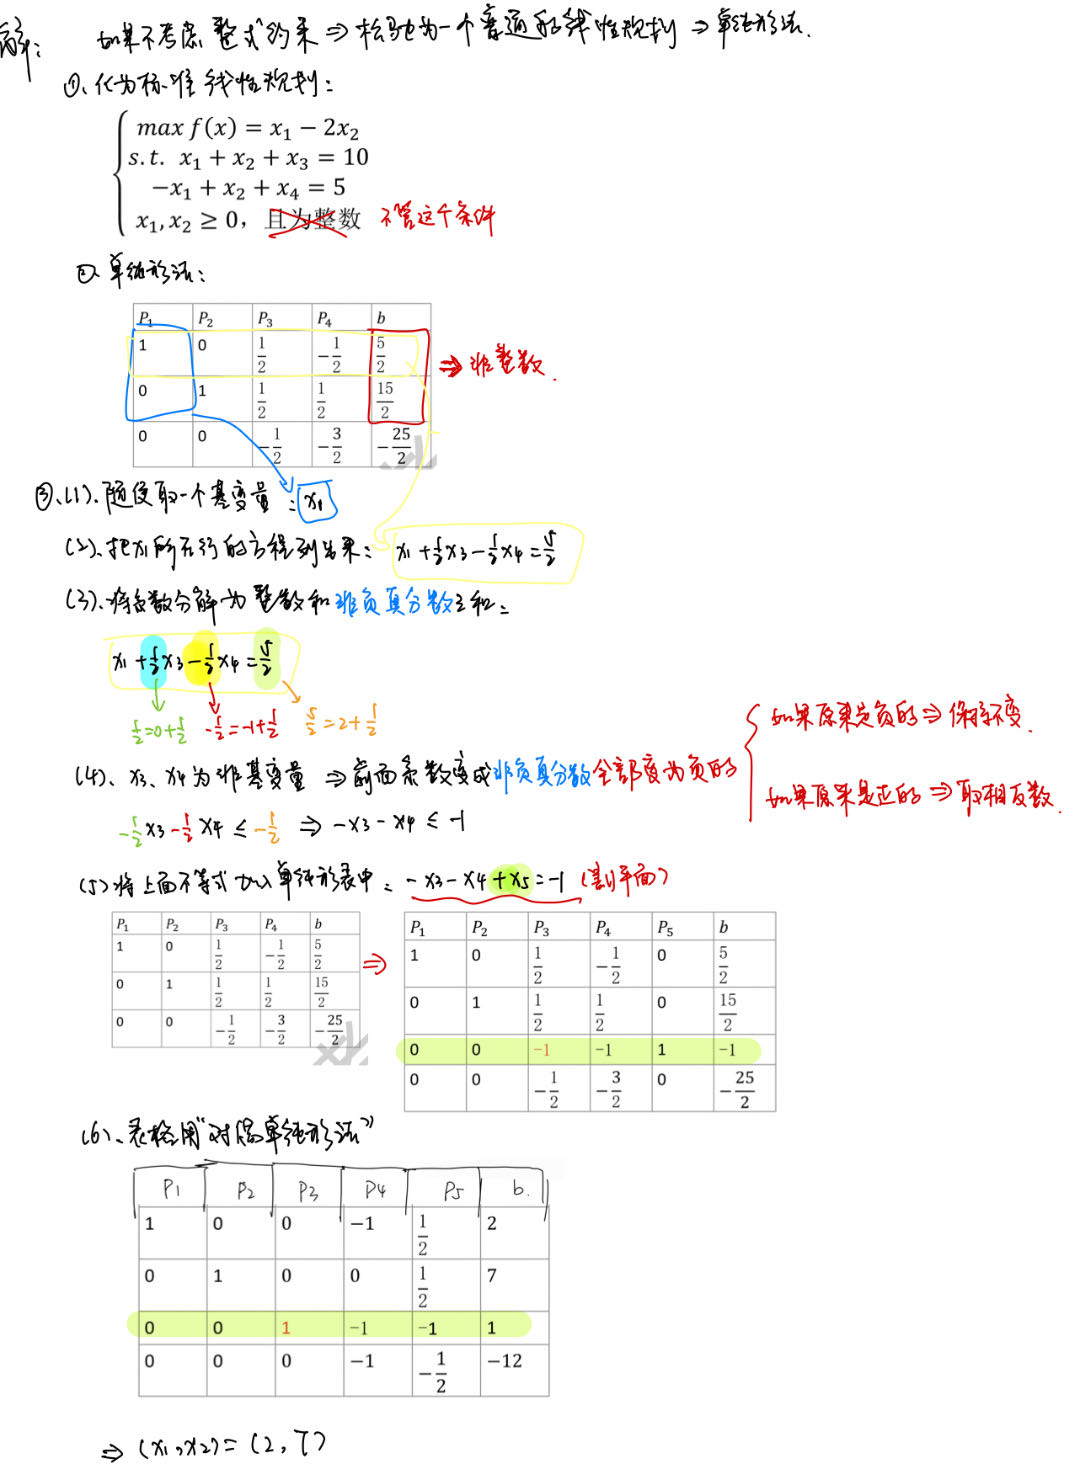 解：如果不考虑"整式"约束 ⇒ 松弛为一个普通的线性规划 ⇒ 单纯形法.
①、化为标准线性规划：
max f(x) = x₁ − 2x₂
s.t. x₁ + x₂ + x₃ = 10
−x₁ + x₂ + x₄ = 5
x₁, x₂ ≥ 0，且为整数 不管这个条件
②、单纯形法：
P₁ P₂ P₃ P₄ b
1 0 1/2 −1/2 5/2 ⇒ 非整数.
0 1 1/2 1/2 15/2
0 0 −1/2 −3/2 −25/2
③、(1)、随便取一个基变量：x₁
(2)、把x₁所在行的方程列出来：x₁ + 1/2 x₃ − 1/2 x₄ = 5/2
(3)、将各数分解为 整数和非负真分数之和：
x₁ + 1/2 x₃ − 1/2 x₄ = 5/2
1/2 = 0 + 1/2 −1/2 = −1 + 1/2 5/2 = 2 + 1/2
如果原来是负的 ⇒ 保持不变.
(4)、x₃、x₄为非基变量 ⇒ 前面系数变成非负真分数全部变为负的
如果原来是正的 ⇒ 取相反数.
−1/2 x₃ − 1/2 x₄ ≤ −1/2 ⇒ −x₃ − x₄ ≤ −1
(5)将上面不等式加入单纯形表中：−x₃ − x₄ + x₅ = −1 (割平面)
P₁ P₂ P₃ P₄ b
1 0 1/2 −1/2 5/2
0 1 1/2 1/2 15/2
0 0 −1/2 −3/2 −25/2
⇒
P₁ P₂ P₃ P₄ P₅ b
1 0 1/2 −1/2 0 5/2
0 1 1/2 1/2 0 15/2
0 0 −1 −1 1 −1
0 0 −1/2 −3/2 0 −25/2
(6)、表格用"对偶单纯形法"
P1 P2 P3 P4 P5 b.
1 0 0 −1 1/2 2
0 1 0 0 1/2 7
0 0 1 −1 −1 1
0 0 0 −1 −1/2 −12
⇒ (x₁, x₂) = (2, 7)